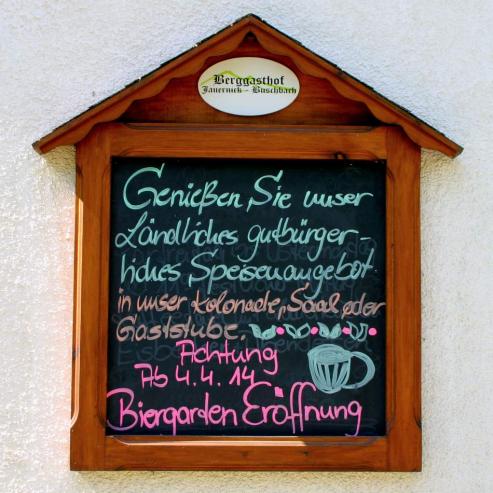 Berggasthof
Jauernick - Buschbach
Genießen Sie unser
Ländliches gutbürger-
liches Speisenangebot
in unser Kolonade, Saal oder
Gaststube.
Achtung
Ab 4.4.14
Biergarden Eröffnung